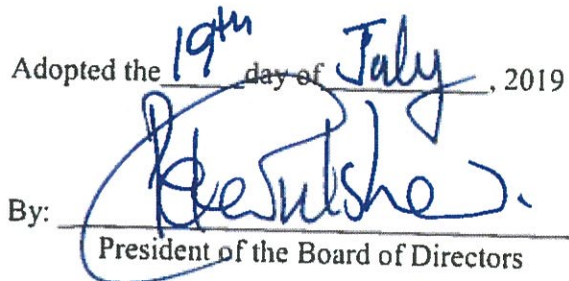 Adopted the 19th day of July, 2019
By:
President of the Board of Directors